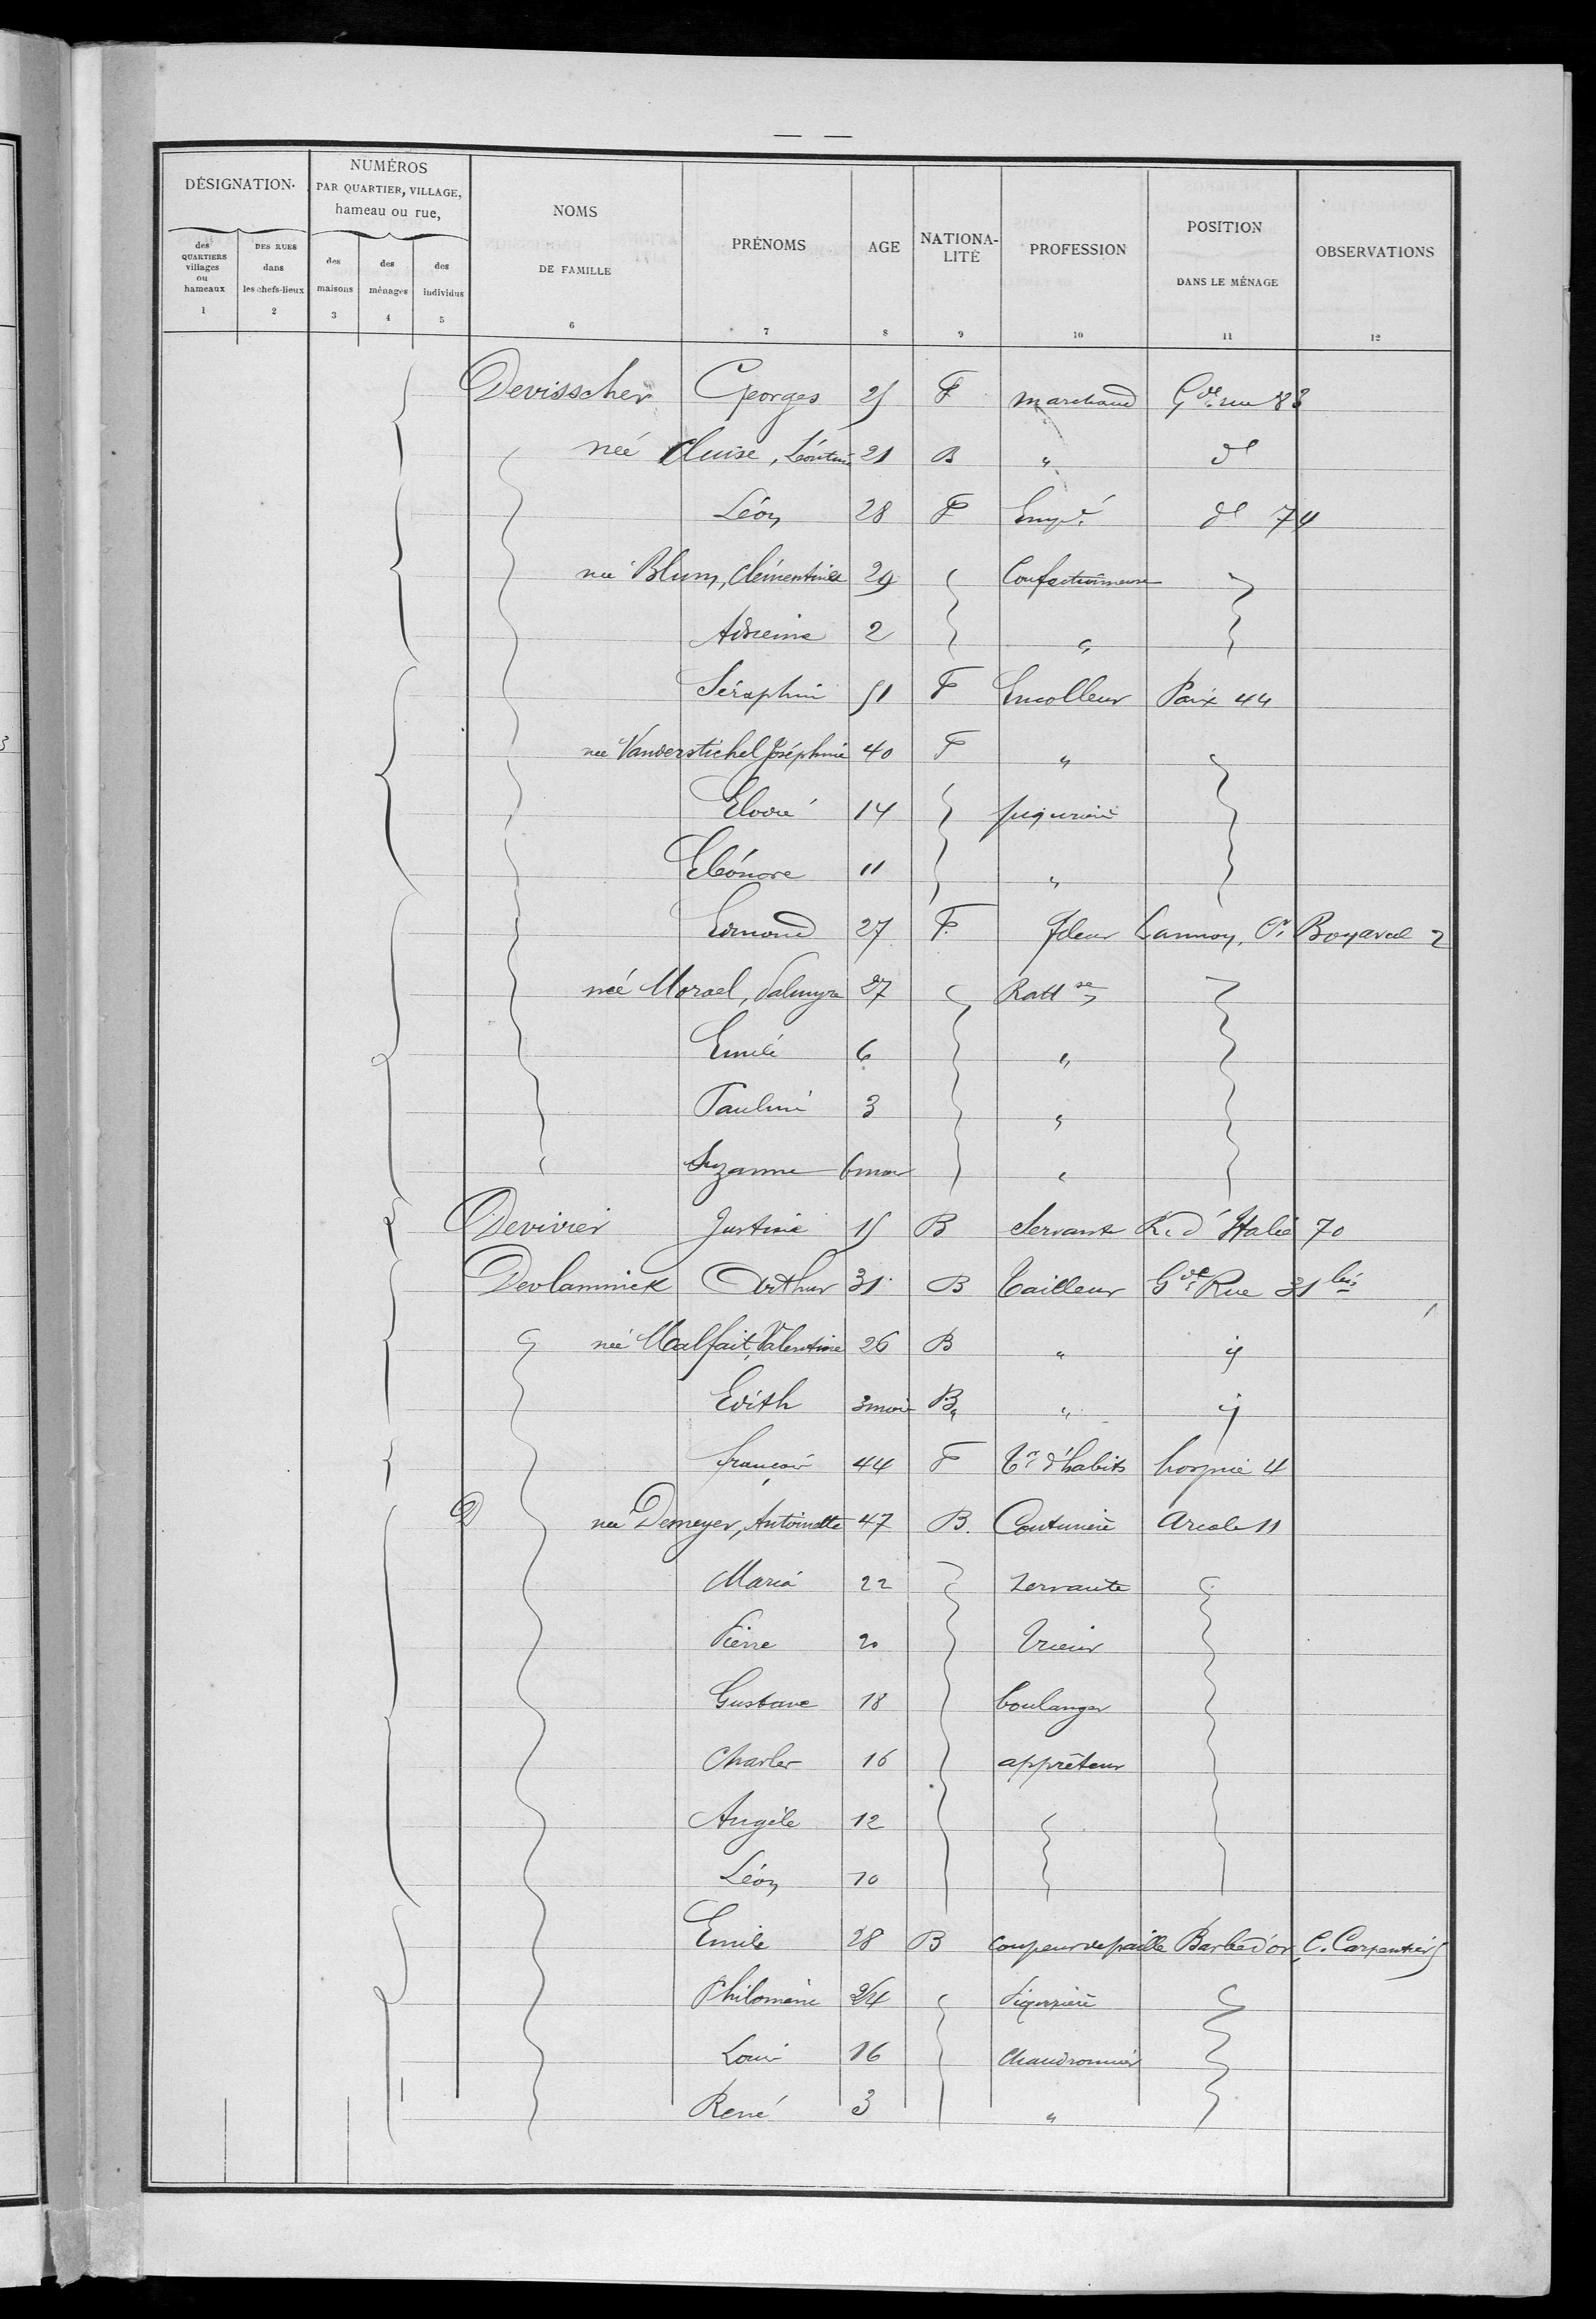 DÉSIGNATION.
NUMÉROS
PAR QUARTIER, VILLAGE,
hameau ou rue,
NOMS
DE FAMILLE
PRÉNOMS
AGE
NATIONA-
LITÉ
PROFESSION
POSITION
DANS LE MÉNAGE
OBSERVATIONS
des
QUARTIERS
villages
ou
hameaux
DES RUES
dans
les chefs-lieux
des
maisons
des
ménages
des
individus
1 2 3 4 5 6 7 8 9 10 11 12
Devisscher Georges 25 F marchand Gde rue 83
née Cluise, Léontine 21 B " do
Léon 28 F Empé do 74
née Blum, Clémentine 29 Confectionneuse
Adrienne 2 "
Séraphin 51 F Encolleur Paix 44
née Vanderstichel Joséphine 40 F "
Elodie 14 piqurière
Eléonore 11 "
Edmond 27 F. fileur Lannoy, Cr Boyaval 2
née Morael, Palmyre 27 Ratt se
Emile 6 "
Pauline 3 "
Suzanne 6 mois "
Devivier Justine 15 B Servante R. d'Italie 70
Devlaminck Arthur 31 B Tailleur Gde Rue 31 bis
née Malfait, Valentine 26 B " "
Edith 3 mois B " "
François 44 F Tr d'habits hospice 4
D née Demeyer, Antoinette 47 B. Couturière Arcole 11
Maria 22 servante
Pierre 20 Trieur
Gustave 18 boulanger
Charles 16 apprêteur
Angèle 12
Léon 10
Emile 28 B coupeur de paille Barbe d'or, C. Carpentier 5
Philomène 24 Piqurière
Louis 16 chaudronnier
René 3 "